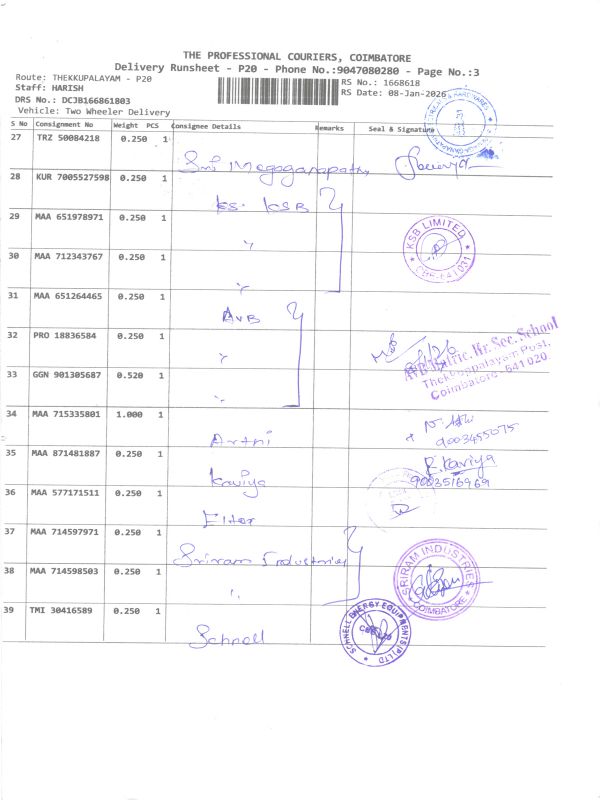 THE PROFESSIONAL COURIERS, COIMBATORE
Delivery Runsheet - P20 - Phone No.:9047080280 - Page No.:3
Route: THEKKUPALAYAM - P20
Staff: HARISH
DRS No.: DCJB166861803
Vehicle: Two Wheeler Delivery
RS No.: 1668618
RS Date: 08-Jan-2026
S No Consignment No Weight PCS Consignee Details Remarks Seal & Signature
27 TRZ 50084218 0.250 1 Sri
28 KUR 7005527598 0.250 1 KS. KSB
29 MAA 651978971 0.250 1 "
KSB LIMITED
CBE-641031
30 MAA 712343767 0.250 1 "
31 MAA 651264465 0.250 1 AVB
32 PRO 18836584 0.250 1 "
AVB Matric. Hr. Sec. School
Thekkuppalayam Post,
Coimbatore - 641 020.
33 GGN 901305687 0.520 1 "
34 MAA 715335801 1.000 1 Arthi
9003455075
35 MAA 871481887 0.250 1 Kaviya
R. Kaviya
9003516969
36 MAA 577171511 0.250 1
37 MAA 714597971 0.250 1 Sriram Industries
38 MAA 714598503 0.250 1 "
SRIRAM INDUSTRIES
COIMBATORE
39 TMI 30416589 0.250 1 Schnell
SCHNELL ENERGY EQUIPMENTS (P) LTD